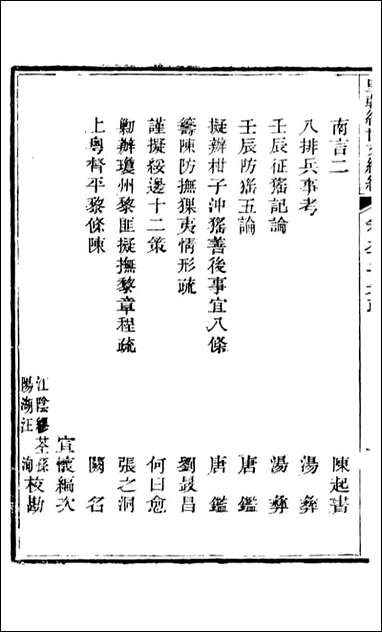 皇朝經世文續編
南言二　陳起書
八排兵事考　湯彝
壬辰征猺記論　湯彝
壬辰防猺五論　唐鑑
擬辦柑子沖猺善後事宜八條　唐鑑
籌陳防撫猓夷情形疏　劉毅昌
謹擬綏邊十二策　何曰愈
勦辦瓊州黎匪擬撫黎章程疏　張之洞
上粵督平黎條陳　闕名
宣懷編次
江陰繆荃孫
陽湖汪洵校勘